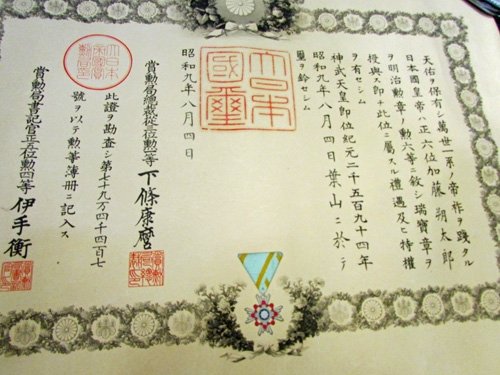 天佑ヲ保有シ萬世一系ノ帝祚ヲ踐タル
日本國皇帝ハ正六位加藤朔太郎
ヲ明治勲章ノ勲六等ニ敍シ瑞寶章ヲ
授與ス即チ此位ニ屬スル禮遇及ヒ特權
ヲ有セシム
神武天皇即位紀元二千五百九十四年
昭和九年八月四日葉山ニ於テ
璽ヲ鈐セシム
大日本
國璽
昭和九年八月四日
賞勲局總裁從三位勲二等下條康麿
此證ヲ勘査シ第七十九万四千四百七
號ヲ以テ勲等簿冊ニ記入ス
賞勲局書記官正五位勲四等伊手衡